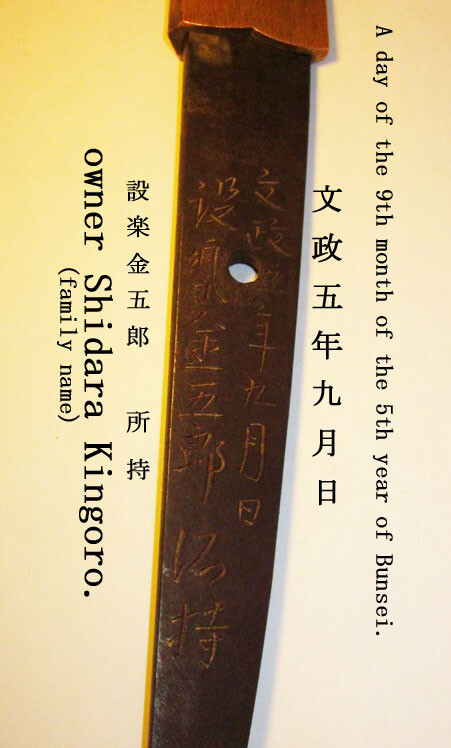 A day of the 9th month of the 5th year of Bunsei.
文政五年九月日
文政五年九月日
設楽金五郎 所持
設樂金五郎 所持
owner Shidara Kingoro.
(family name)